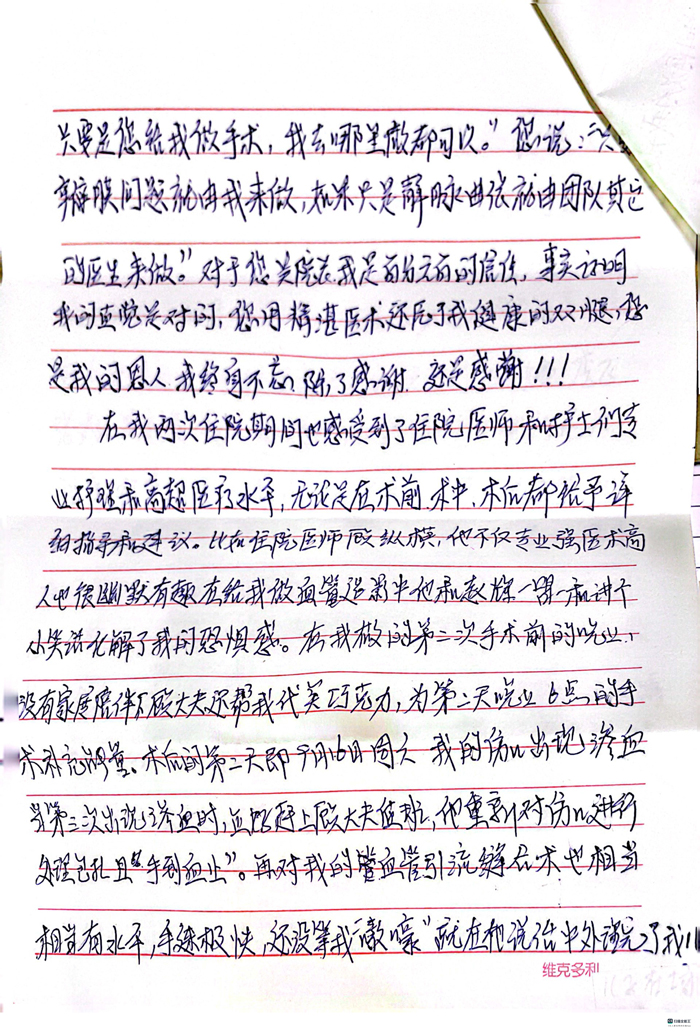 只要是您给我做手术，我去哪里做都可以。”您说：“只
瓣膜问题就由我来做，如果只是静脉曲张就由团队其它
的医生来做。”对于您关院长我是百分之百的信任，事实证明
我的直觉是对的，您用精湛医术还原了我健康的双腿，您
是我的恩人，我终身不忘，除了感谢，还是感谢！！！
在我两次住院期间也感受到了住院医师和护士们专
业护理和高超医疗水平，无论是在术前、术中、术后都给予详
细指导和建议。比如住院医师殷纵横，他不仅专业强医术高
人也很幽默有趣在给我做血管造影中他和赵辉一唱一和讲个
小笑话化解了我的恐惧感。在我做的第二次手术前的晚上，
没有家属陪伴殷大夫还帮我代买巧克力，为第二天晚上6点的手
术补充能量。术后的第二天即9月16日周六我的伤口出现渗血
当第三次出现渗血时，正好赶上殷大夫值班，他重新对伤口进行
处理包扎且“手到血止”。再对我的血管引流缝合术也相当
相当有水平，手速极快，还没等我“嗷嚎”就在他说话中外缝完了我
维克多利